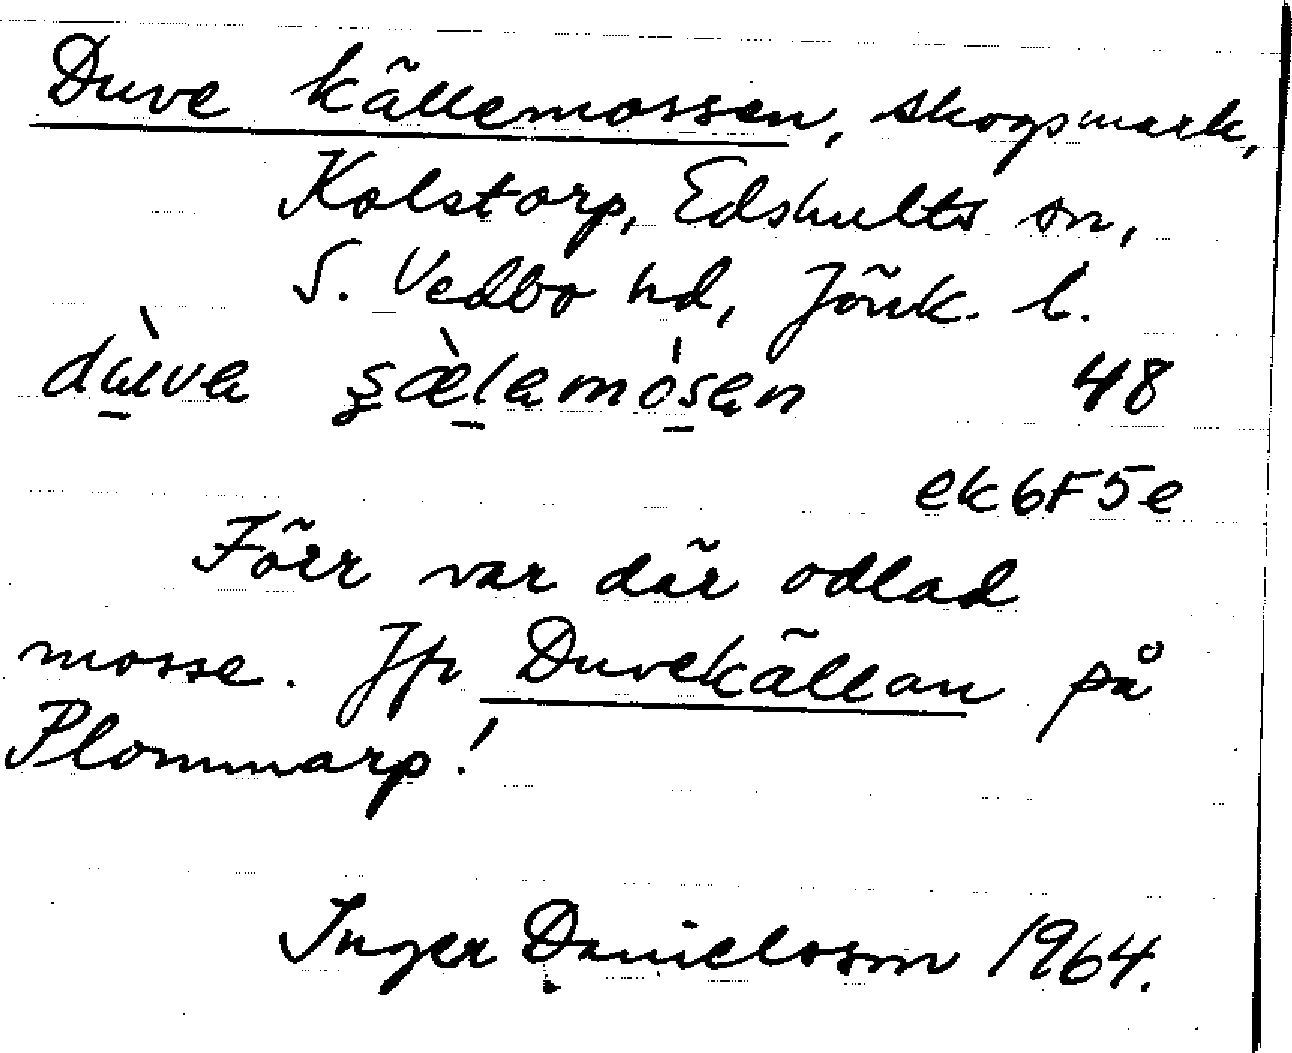 Duve källemossen, skogsmark,
Kolstorp, Edshults sn,
S. Vedbo hd, Jönk. l.
48
ek6F5e
Förr var där odlad
mosse. Jfr Duvekällan på
Plommarp!
Inger Danielsson 1964.